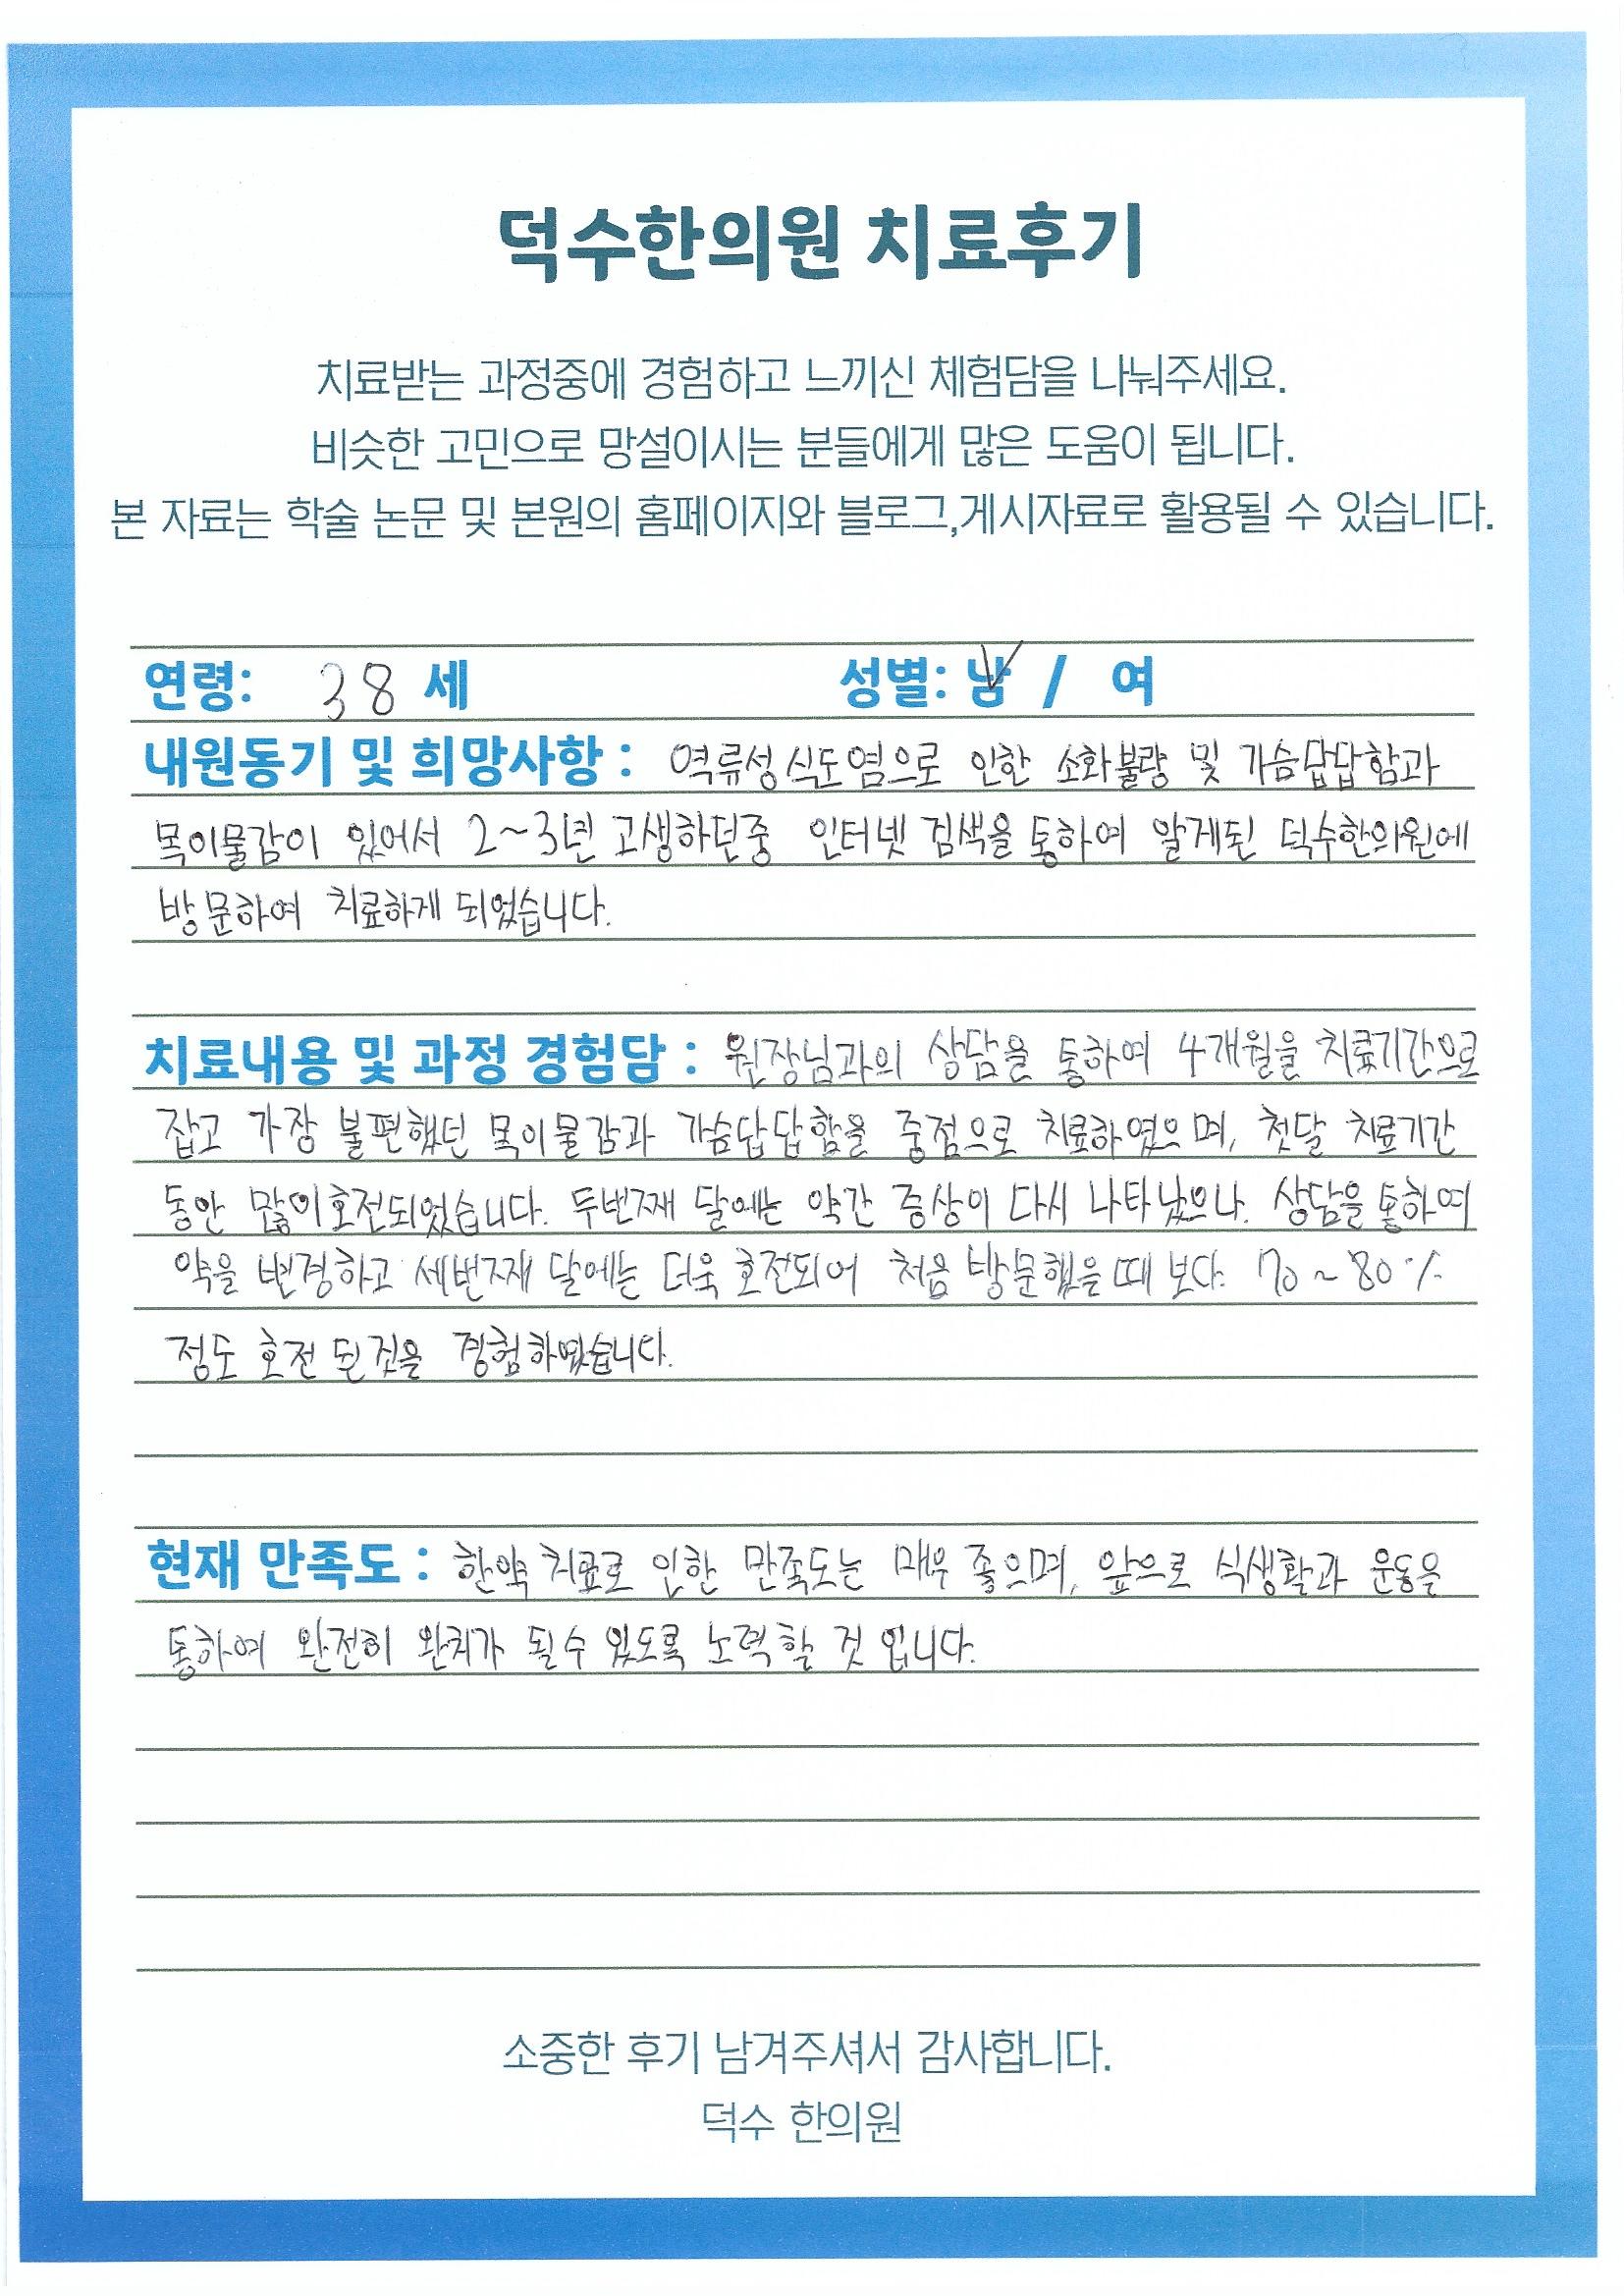 덕수한의원 치료후기
치료받는 과정중에 경험하고 느끼신 체험담을 나눠주세요.
비슷한 고민으로 망설이시는 분들에게 많은 도움이 됩니다.
본 자료는 학술 논문 및 본원의 홈페이지와 블로그,게시자료로 활용될 수 있습니다.
연령: 38 세 성별: 남 / 여
내원동기 및 희망사항 : 역류성식도염으로 인한 소화불량 및 가슴답답함과
목이물감이 있어서 2~3년 고생하던중 인터넷 검색을 통하여 알게된 덕수한의원에
방문하여 치료하게 되었습니다.
치료내용 및 과정 경험담 : 원장님과의 상담을 통하여 4개월을 치료기간으로
잡고 가장 불편했던 목이물감과 가슴답답함을 중점으로 치료하였으며, 첫달 치료기간
동안 많이호전되었습니다. 두번째 달에는 약간 증상이 다시 나타났으나. 상담을 통하여
약을 변경하고 세번째 달에는 더욱 호전되어 처음 방문했을때 보다. 70~80%
정도 호전 된것을 경험하였습니다.
현재 만족도 : 한약 치료로 인한 만족도는 매우 좋으며, 앞으로 식생활과 운동을
통하여 완전히 완치가 될수 있도록 노력할 것 입니다.
소중한 후기 남겨주셔서 감사합니다.
덕수 한의원